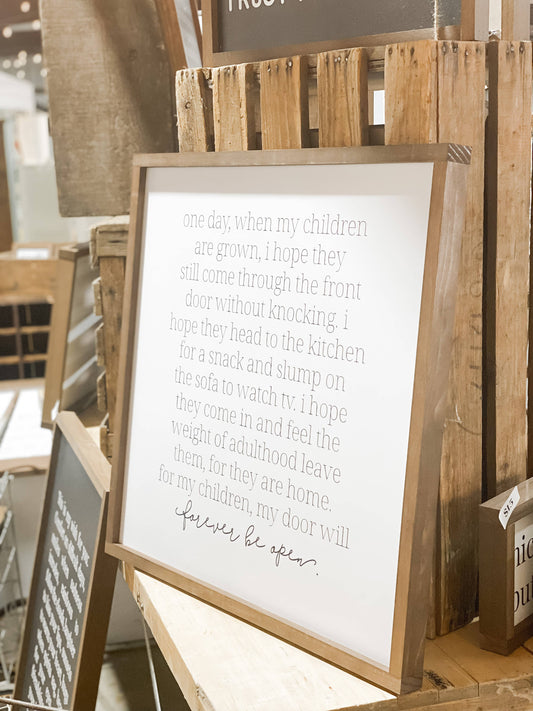 TRUST
one day, when my children
are grown, i hope they
still come through the front
door without knocking. i
hope they head to the kitchen
for a snack and slump on
the sofa to watch tv. i hope
they come in and feel the
weight of adulthood leave
them, for they are home.
for my children, my door will
forever be open.
$15